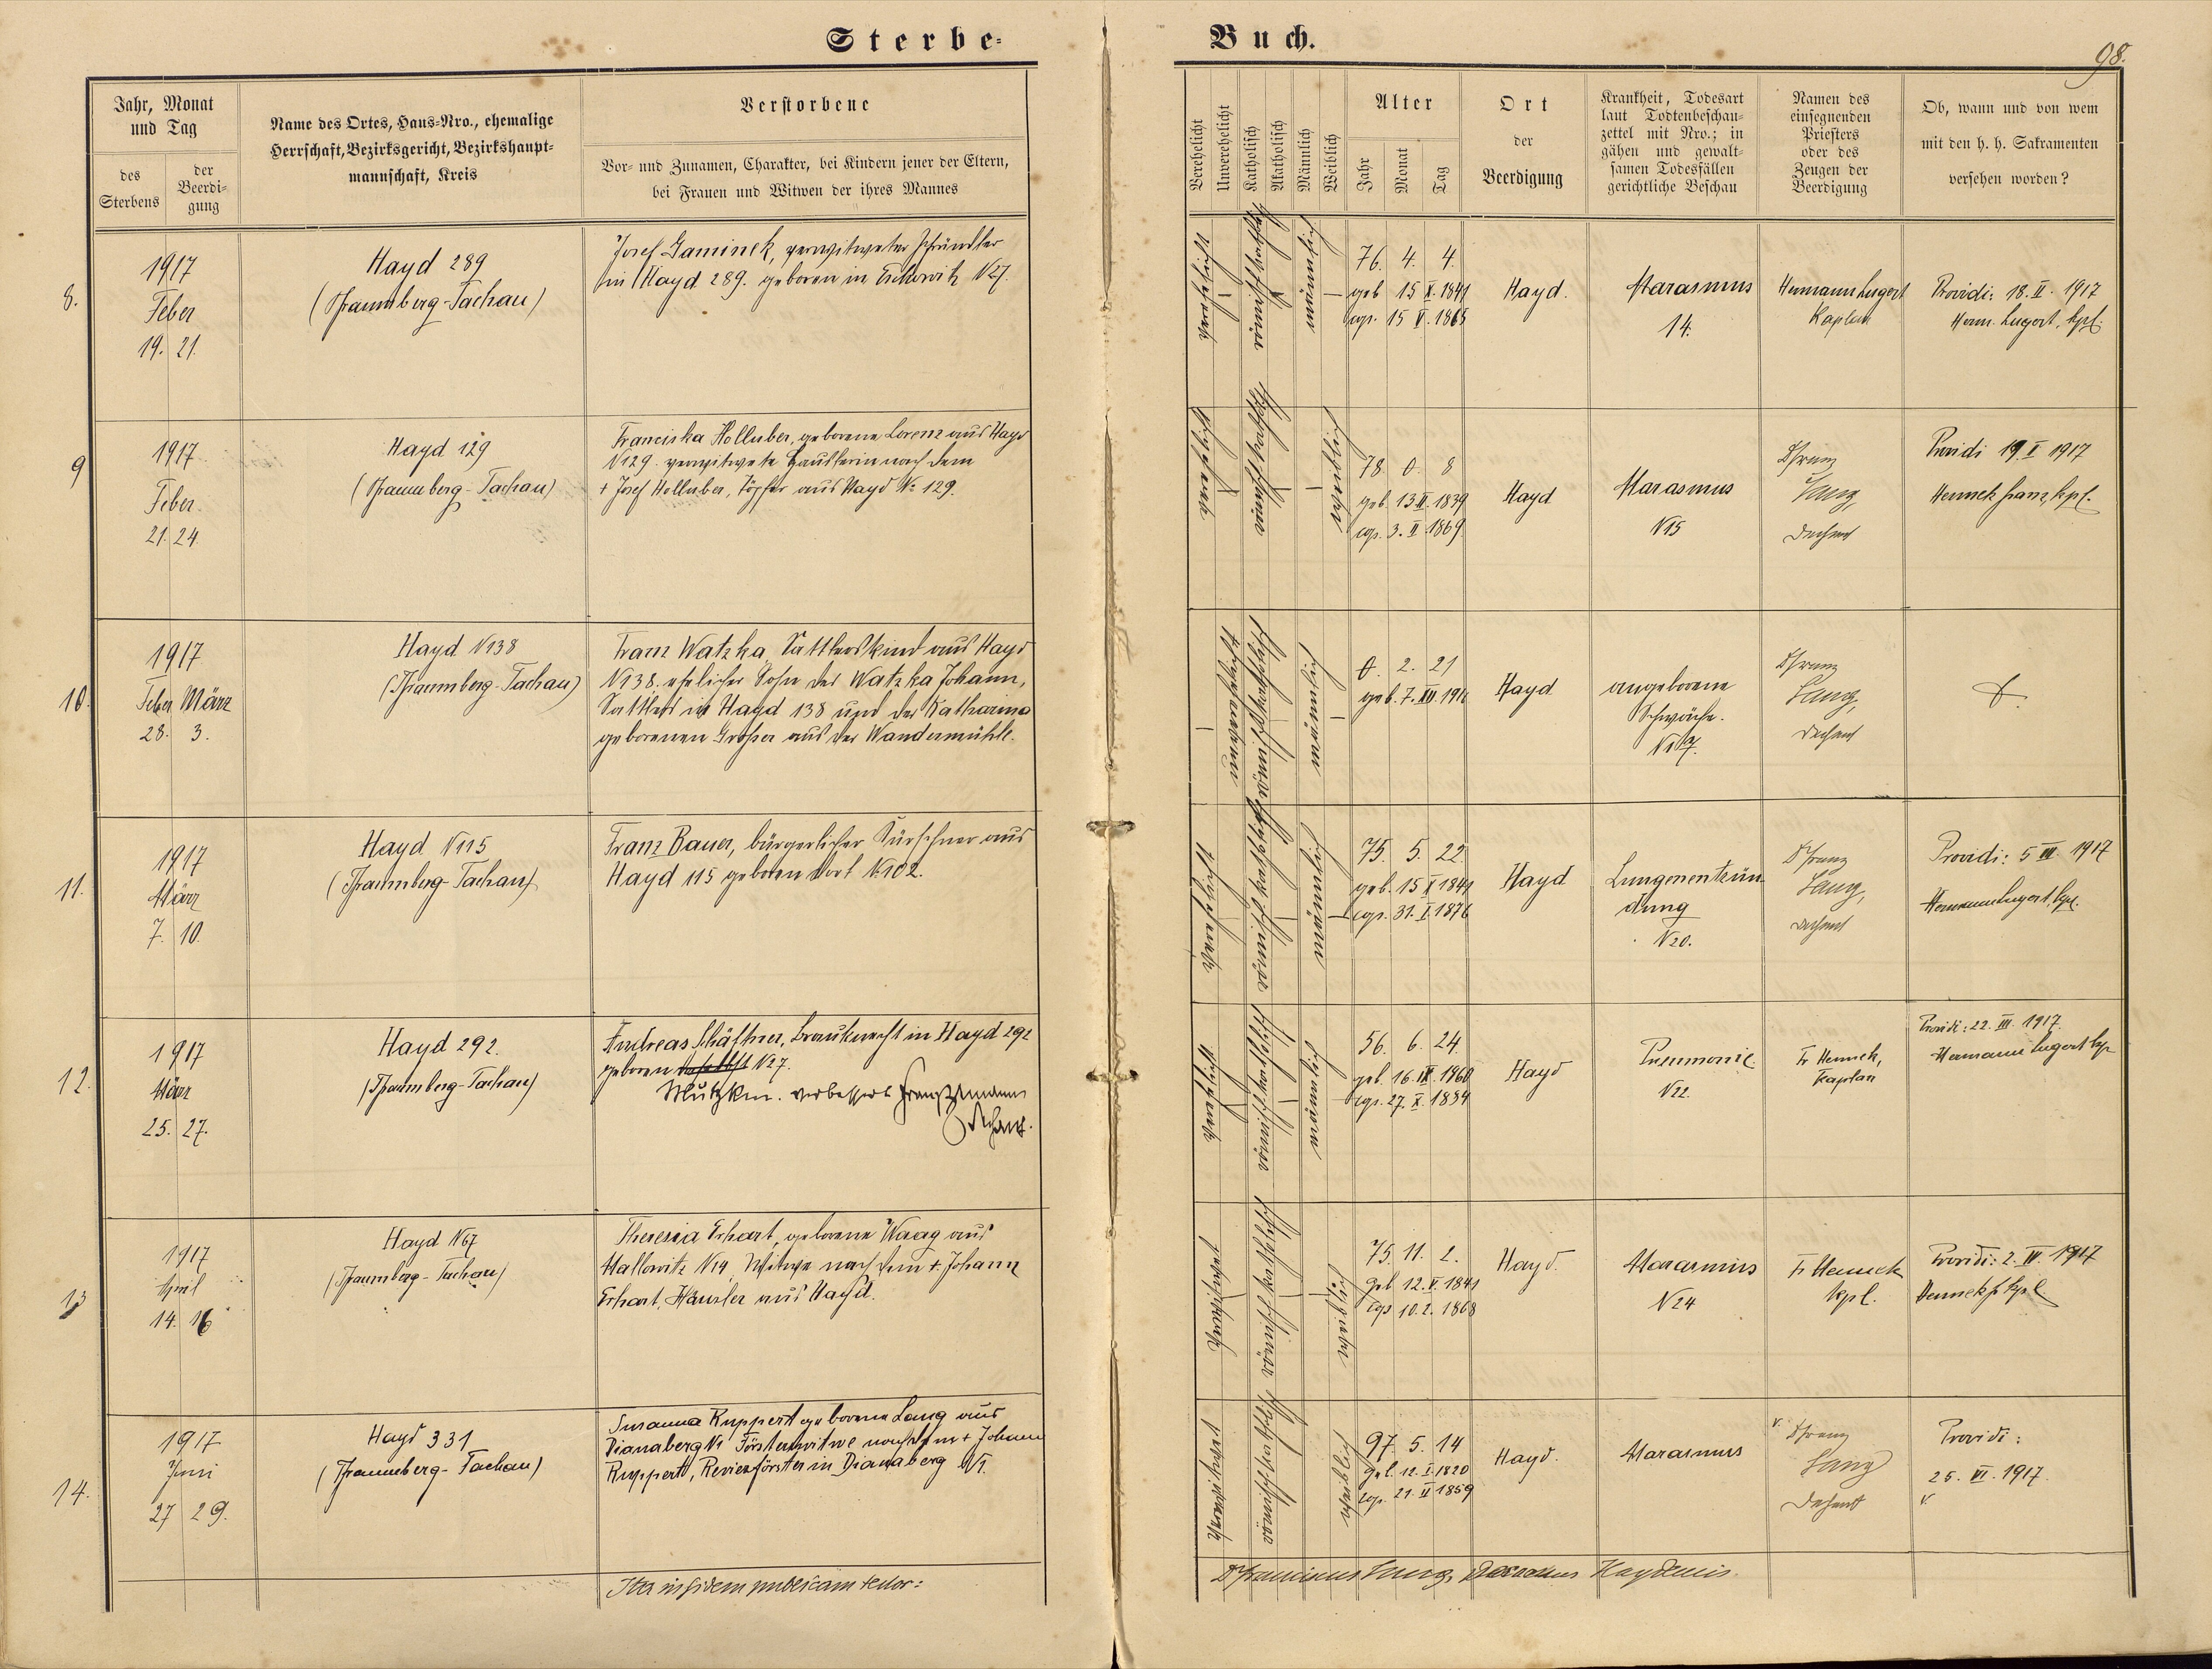 Sterbe-
Buch.
98.
Jahr, Monat
und Tag
des
Sterbens
der
Beerdi-
gung
Name des Ortes, Haus-Nro., ehemalige
Herrschaft, Bezirksgericht, Bezirkshaupt-
mannschaft, Kreis
Verstorbene
Vor- und Zunamen, Charakter, bei Kindern jener der Eltern,
bei Frauen und Witwen der ihres Mannes
Verehelicht
Unverehelicht
Katholisch
Akatholisch
Männlich
Weiblich
Alter
Jahr
Monat
Tag
Ort
der
Beerdigung
Krankheit, Todesart
laut Todtenbeschau-
zettel mit Nro.; in
gähen und gewalt-
samen Todesfällen
gerichtliche Beschau
Namen des
einsegnenden
Priesters
oder des
Zeugen der
Beerdigung
Ob, wann und von wem
mit den h. h. Sakramenten
versehen worden?
8.
1917
Feber
19. 21.
Hayd 289
(Pfraumberg-Tachau)
Josef Gaminek, verwitweter Pfründler
in Hayd 289. geboren in N27.
verehelicht
römisch katholisch
männlich
76. 4. 4.
geb 15 X. 1841
cop. 15 V. 1865
Hayd.
Marasmus
14.
Hermann Lugert
Kaplan
Providi: 18. II. 1917
Herm. Lugert, kpl.
9
1917
Feber
21. 24.
Hayd 129
(Pfraumberg-Tachau)
Franciska Holluber, geborene Lorenz aus Hayd
N129. verwitwete Häuslerin nach dem
+ Josef Holluber, Töpfer aus Hayd No 129.
verehelicht
römisch katholisch
weiblich
78. 0. 8
geb. 13 II. 1839
cop. 3. II. 1869.
Hayd
Marasmus
N15
P. Franz
Lang,
Dechant
Providi 19. I 1917
Hennek Franz, kpl.
10.
1917
Feber März
28. 3.
Hayd N138
(Pfraumberg-Tachau)
Franz Watzka, Sattlerskind aus Hayd
N138. ehelicher Sohn des Watzka Johann,
Sattlers in Hayd 138 und der Katharina
geborenen Großer aus der Wandermühle.
unverehelicht
römisch katholisch
männlich
0. 2. 21
geb. 7. XII. 1916
Hayd
angeborene
Schwäche.
N17.
P. Franz
Lang,
Dechant
11.
1917
März
7. 10.
Hayd N115
(Pfraumberg-Tachau)
Franz Bauer, bürgerlicher Kürschner aus
Hayd 115 geboren dort N102.
verehelicht
römisch katholisch
männlich
75. 5. 22.
geb. 15 X 1841
cop. 31. I. 1876
Hayd
Lungenentzün
dung
N20.
P. Franz
Lang,
Dechant
Providi: 5 III. 1917
Hermann Lugert, kpl.
12.
1917
März
25. 27.
Hayd 292.
(Pfraumberg-Tachau)
Andreas Schäftner, Brauknecht in Hayd 292
geboren daselbst N27.
verbessert
Dechant.
verehelicht
römisch katholisch
männlich
56. 6. 24.
geb. 16. IX. 1860
cop. 27. X. 1884
Hayd
Pneumonie
N22.
Fr. Hennek,
Kaplan
Providi: 22. III. 1917.
Hermann Lugert kpl
13
1917
April
14. 16
Hayd N67
(Pfraumberg-Tachau)
Theresia Erhart, geborene Waag aus
Mallowitz N14 Witwe nach dem + Johann
Erhart, Häusler aus Hayd.
verwitwet
römisch katholisch
weiblich
75. 11. 2.
geb 12. V. 1841
cop 10. 2. 1868
Hayd.
Marasmus
N24
Fr Hennek
kpl.
Providi: 2. IV. 1917
Hennek f kpl.
14.
1917
Juni
27 29.
Hayd 331
(Pfraumberg-Tachau)
Susanna Ruppert geborene Lang aus
Dianaberg N1 Försterswitwe nach dem + Johann
Ruppert, Revierförster in Dianaberg N1.
verwitwet
römisch katholisch
weiblich
97. 5. 14
geb. 12. I. 1820
cop. 21. II 1859
Hayd.
Marasmus
P. Franz
Lang
Dechant
Providi:
25. VI. 1917.
Ita in fidem publicam testor:
P. Franciscus Lang, Decanus Haydensis.